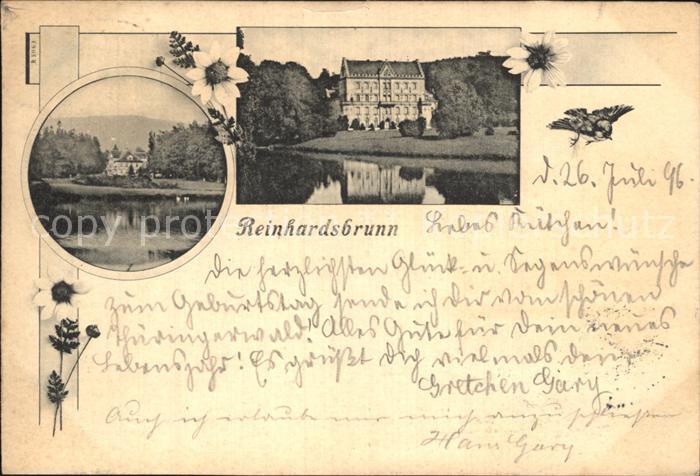 R 3063
Reinhardsbrunn
d. 26. Juli 96.
Liebes Kätchen!
Die herzlichsten Glück- u. Segenswünsche
zum Geburtstag sende ich Dir vom schönen
Thüringerwald! Alles Gute für Dein neues
Lebensjahr! Es grüßt Dich vielmals dein
Gretchen Gary.
Auch ich erlaube mir mich anzuschließen
Hans Gary
copyright protected